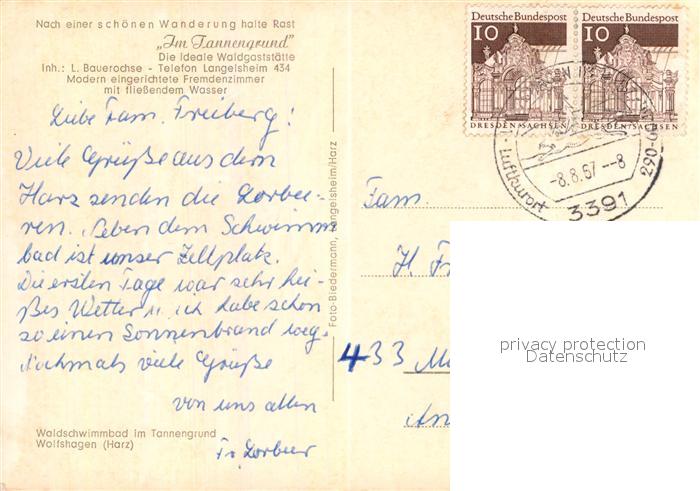 Nach einer schönen Wanderung halte Rast
„Im Tannengrund"
Die ideale Waldgaststätte
Inh.: L. Bauerochse - Telefon Langelsheim 434
Modern eingerichtete Fremdenzimmer
mit fließendem Wasser
Liebe Fam. Freiberg!
Viele Grüße aus dem
Harz senden die Lorbee-
ren. Neben dem Schwimm
bad ist unser Zeltplatz.
Die ersten Tage war sehr hei-
ßes Wetter u. ich habe schon
so einen Sonnenbrand weg.
Nochmals viele Grüße
von uns allen
Fr. Lorbeer
Waldschwimmbad im Tannengrund
Wolfshagen (Harz)
Foto-Biedermann, Langelsheim/Harz
Deutsche Bundespost
10
DRESDEN/SACHSEN
Deutsche Bundespost
10
DRESDEN/SACHSEN
-8.8.67--8
3391
Luftkurort
Fam.
H. Fr
433 M
An
privacy protection
Datenschutz